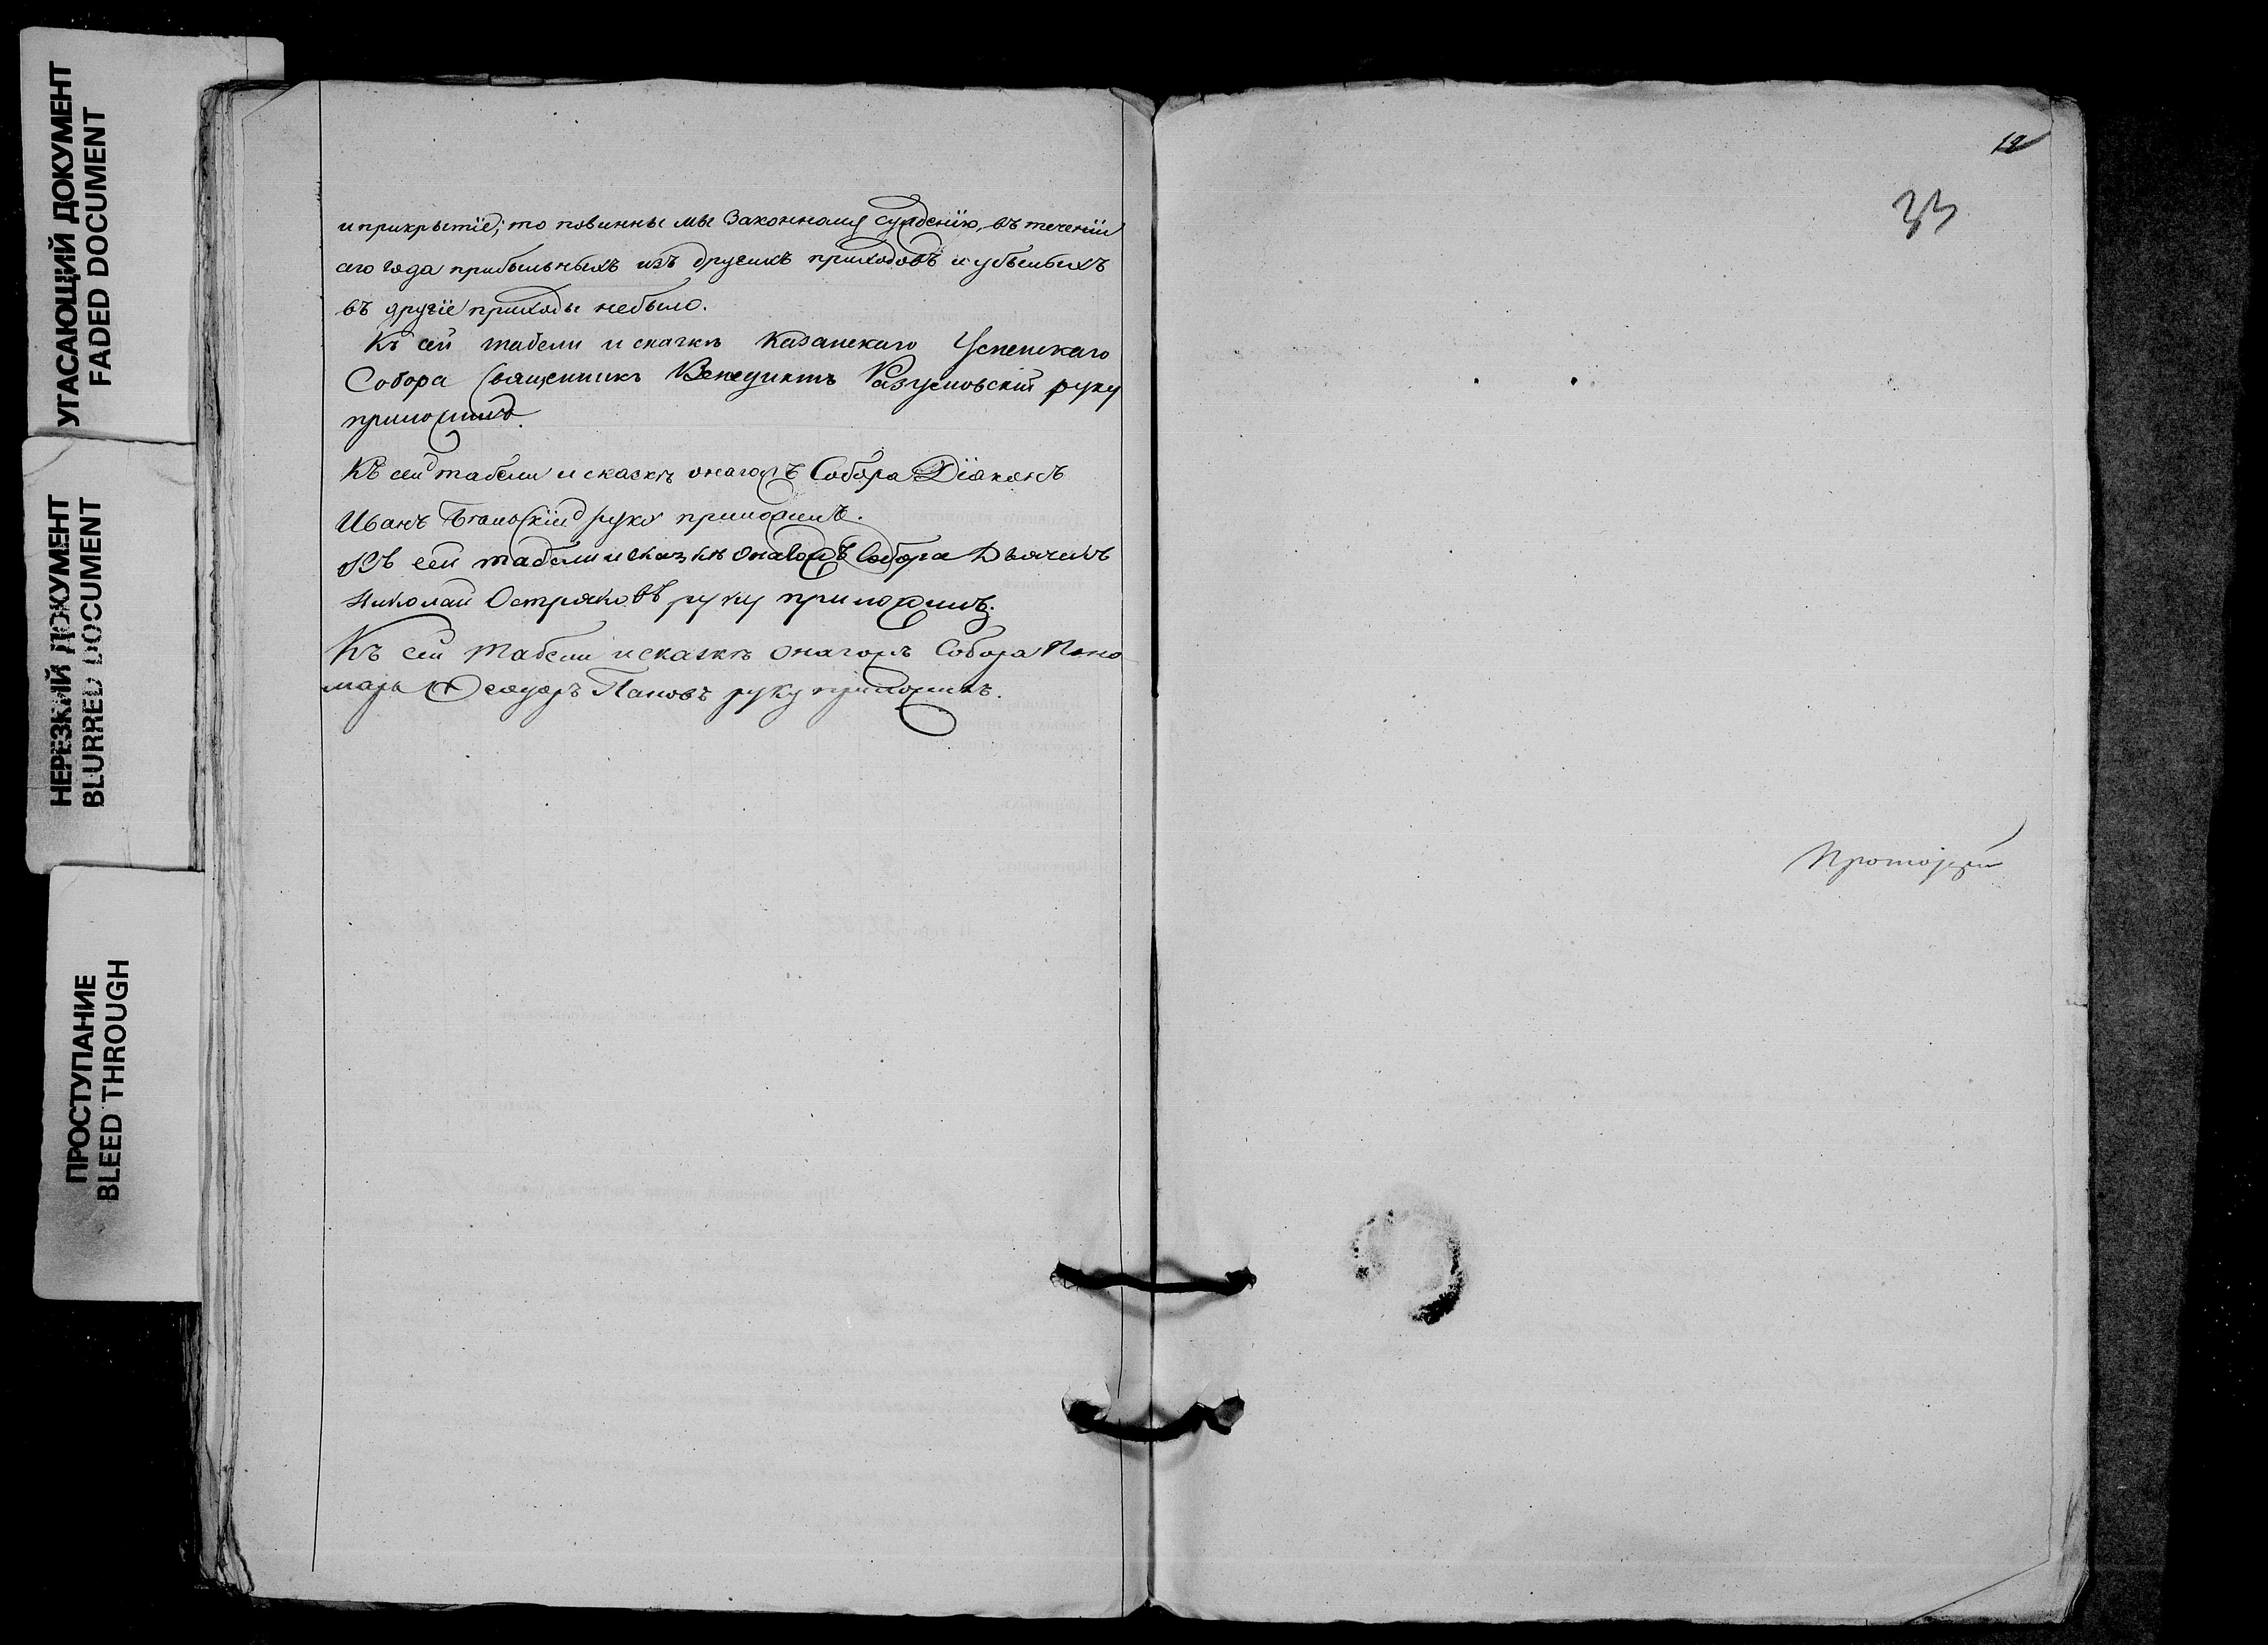 УГАСАЮЩИЙ ДОКУМЕНТ
FADED DOCUMENT
НЕРЕЗКИЙ ДОКУМЕНТ
BLURRED DOCUMENT
ПРОСТУПАНИЕ
BLEED THROUGH
и прикрытіе; то повинны мы законному сужденію, въ теченіи
сего года прибыльныхъ изъ другихъ приходовъ и убылыхъ
въ другіе приходы небыло.
Къ сей табели и сказкѣ Казанскаго Успенскаго
Собора Священникъ Венедиктъ Разумовскій руку
приложилъ.
Къ сей табели и сказкѣ онагожъ Собора Діаконъ
Иванъ руку приложилъ.
Къ сей табели и сказкѣ онагожъ Собора Дьячекъ
Николай Остряковъ руку приложилъ.
Къ сей табели и сказкѣ онагожъ Собора Поно
марь Ѳеодоръ Пановъ руку приложилъ.
12
33